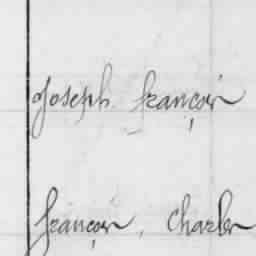 Joseph françois
françois, Charles